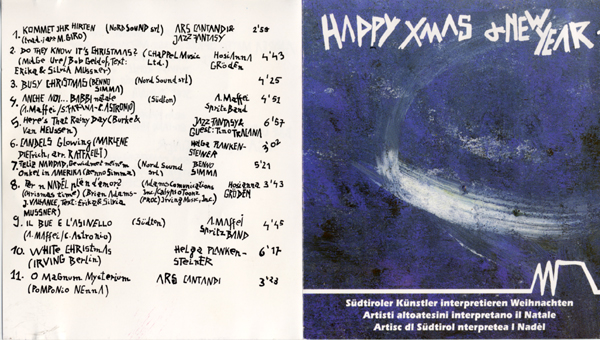 1. KOMMET IHR HIRTEN (NORD SOUND srl) ARS CANTANDI & 2'58
(trad./arr. M. GIRO) JAZZ FANTASY
2. DO THEY KNOW IT'S CHRISTMAS? (CHAPPEL Music HosiANNA 4'43
(Midge Ure/Bob Geldof, Text: Ltd.) GRÖDEN
Erika & Silvia MUSSNER)
3. BUSY CHRISTMAS (BENNO SIMMA) (Nord Sound srl) 4'25
4. ANCHE NOI... BABBI natale (Südton) A. Maffei 4'52
(A. Maffei/ C. ASTRONIO) SpritzBand
5. Here's That Rainy Day (Burke & JAZZ FANTASY & 6'57
Van HEUSSEN) Guest: Tino TRACANNA
6. CANDELS Glowing (MARLENE HELGA PLANKEN- 3'02
DIETRICH; arr. RATTFELTI) STEINER
7. FELIZ NAVIDAD, Gewidmet meinem (Nord Sound BENNO 5'21
Onkel in AMERIKA (Benno Simma) srl) SIMMA
8. Per n NADËL plën d'amor? (Adams Comunications Hosianna 3'43
(Chrismas time) (Brian Adams- Inc/Calypso Toonz GRÖDEN
J. VALLANCE, Text: Erika & Silvia PROC) Irving Music, Inc)
MUSSNER)
9. IL BUE E L'ASINELLO (Südton) A. MAFFEI 4'45
(A. MAFFEI/C. Astronio) Spritz BAND
10. WHITE CHRISTMAS Helga PLANKEN- 6'17
(IRVING Berlin) STEINER
11. O MAGNUM MYSTERIUM ARS CANTANDI 3'23
(POMPONIO NENNA)
HAPPY XMAS & NEW
YEAR
Südtiroler Künstler interpretieren Weihnachten
Artisti altoatesini interpretano il Natale
Artisc dl Südtirol nterpretea l Nadèl